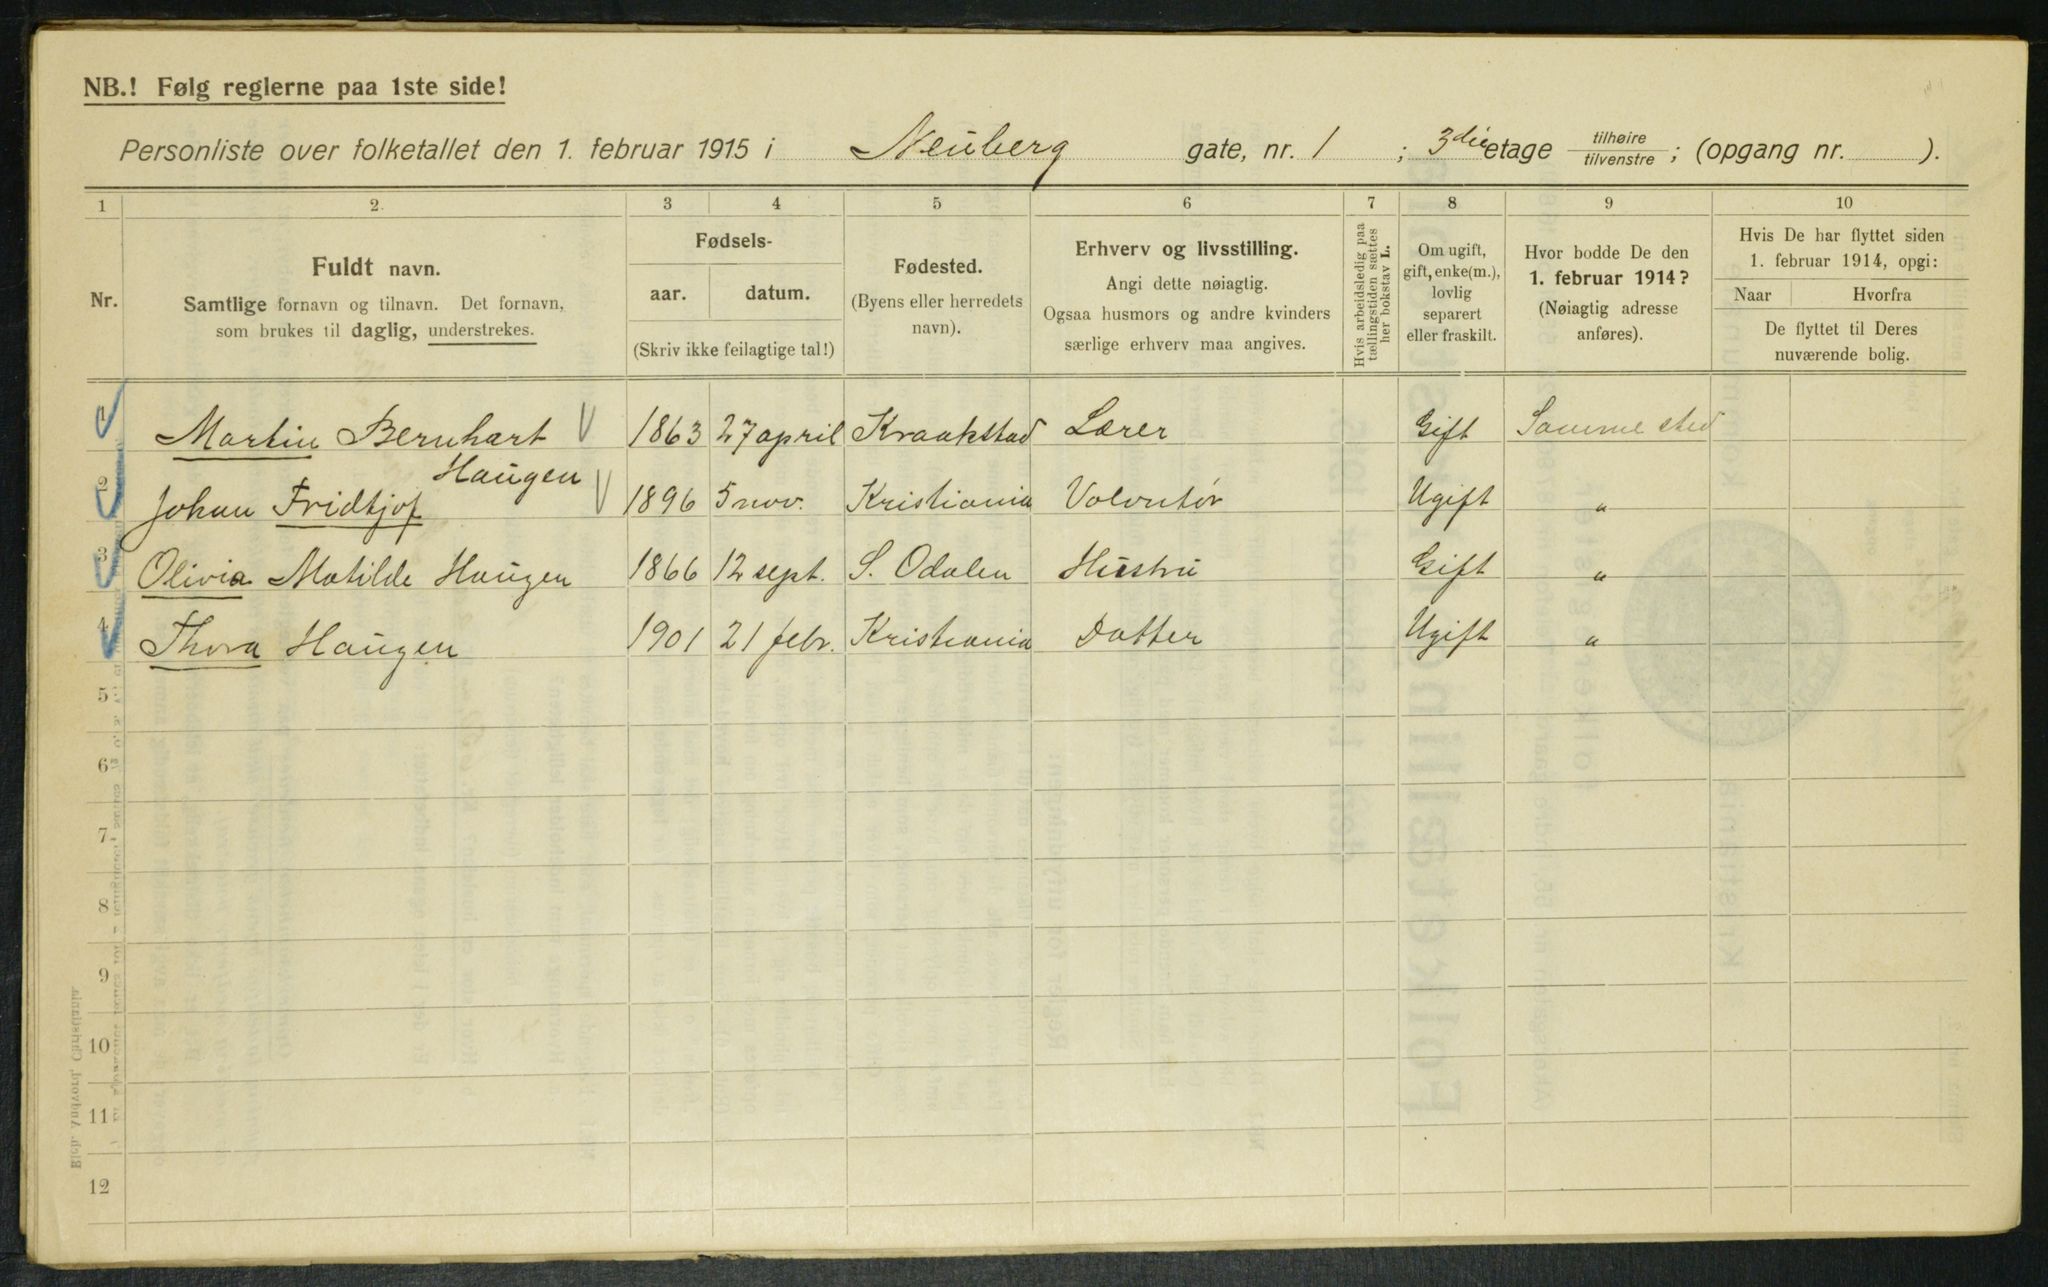 NB.! Følg reglerne paa 1ste side!
Personliste over folketallet den 1. februar 1915 i Neuberg gate, nr. 1 ; 3die etage tilhøire / tilvenstre ; (opgang nr. ).
1 2 3 4 5 6 7 8 9 10
Nr.
Fuldt navn.
Samtlige fornavn og tilnavn. Det fornavn,
som brukes til daglig, understrekes.
Fødsels-
aar. datum.
(Skriv ikke feilagtige tal!)
Fødested.
(Byens eller herredets
navn).
Erhverv og livsstilling.
Angi dette nøiagtig.
Ogsaa husmors og andre kvinders
særlige erhverv maa angives.
Hvis arbeidsledig paa
tællingstiden sættes
her bokstav L.
Om ugift,
gift, enke(m.),
lovlig
separert
eller fraskilt.
Hvor bodde De den
1. februar 1914?
(Nøiagtig adresse
anføres).
Hvis De har flyttet siden
1. februar 1914, opgi:
Naar Hvorfra
De flyttet til Deres
nuværende bolig.
1 Martin Bernhart Haugen 1863 27 april Kraakstad Lærer Gift Samme sted
2 Johan Fridtjof 1896 5 nov. Kristiania Volontør Ugift "
3 Olivia Matilde Haugen 1866 12 sept. S. Odalen Hustru Gift "
4 Thora Haugen 1901 21 febr. Kristiania Datter Ugift "
5
6
7
8
9
10
11
12
Rich. Andvord, Christiania.